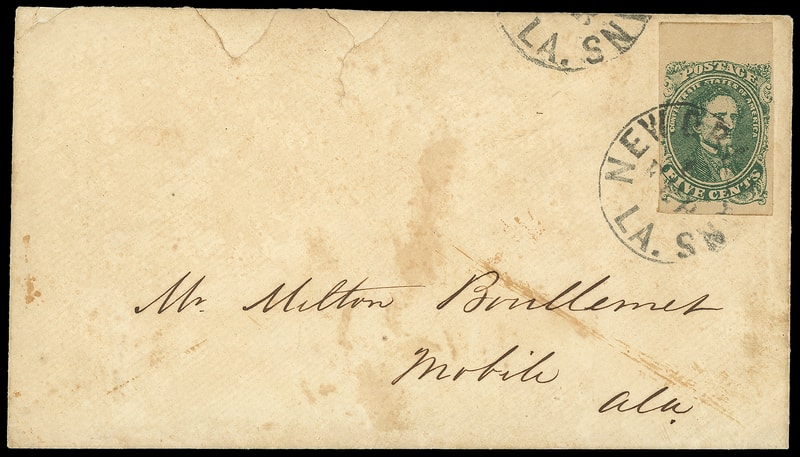 LA. SN
POSTAGE
CONFEDERATE STATES OF AMERICA
FIVE CENTS
NEW OR
LA. SN
Mr. Milton Boullemet
Mobile
Ala.